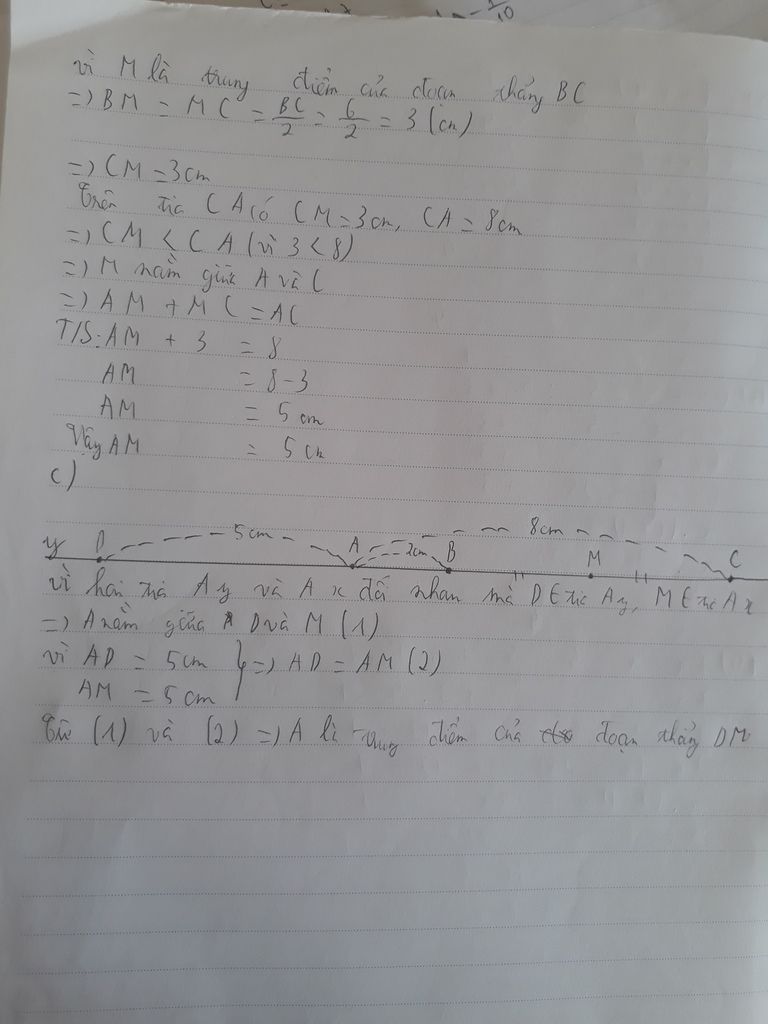 vì M là trung điểm của đoạn thẳng BC
=) BM = MC = BC/2 = 6/2 = 3 (cm)
=) CM = 3cm
Trên tia CA có CM = 3cm, CA = 8cm
=) CM < CA (vì 3 < 8)
=) M nằm giữa A và C
=) AM + MC = AC
T/S: AM + 3 = 8
AM = 8 - 3
AM = 5 cm
Vậy AM = 5 cm
c)
5cm 8cm
y D A 2cm B M C
vì hai tia Ay và Ax đối nhau mà D ∈ tia Ay, M ∈ tia Ax
=) A nằm giữa D và M (1)
vì AD = 5cm } =) AD = AM (2)
AM = 5cm
Từ (1) và (2) =) A là trung điểm của đoạn thẳng DM